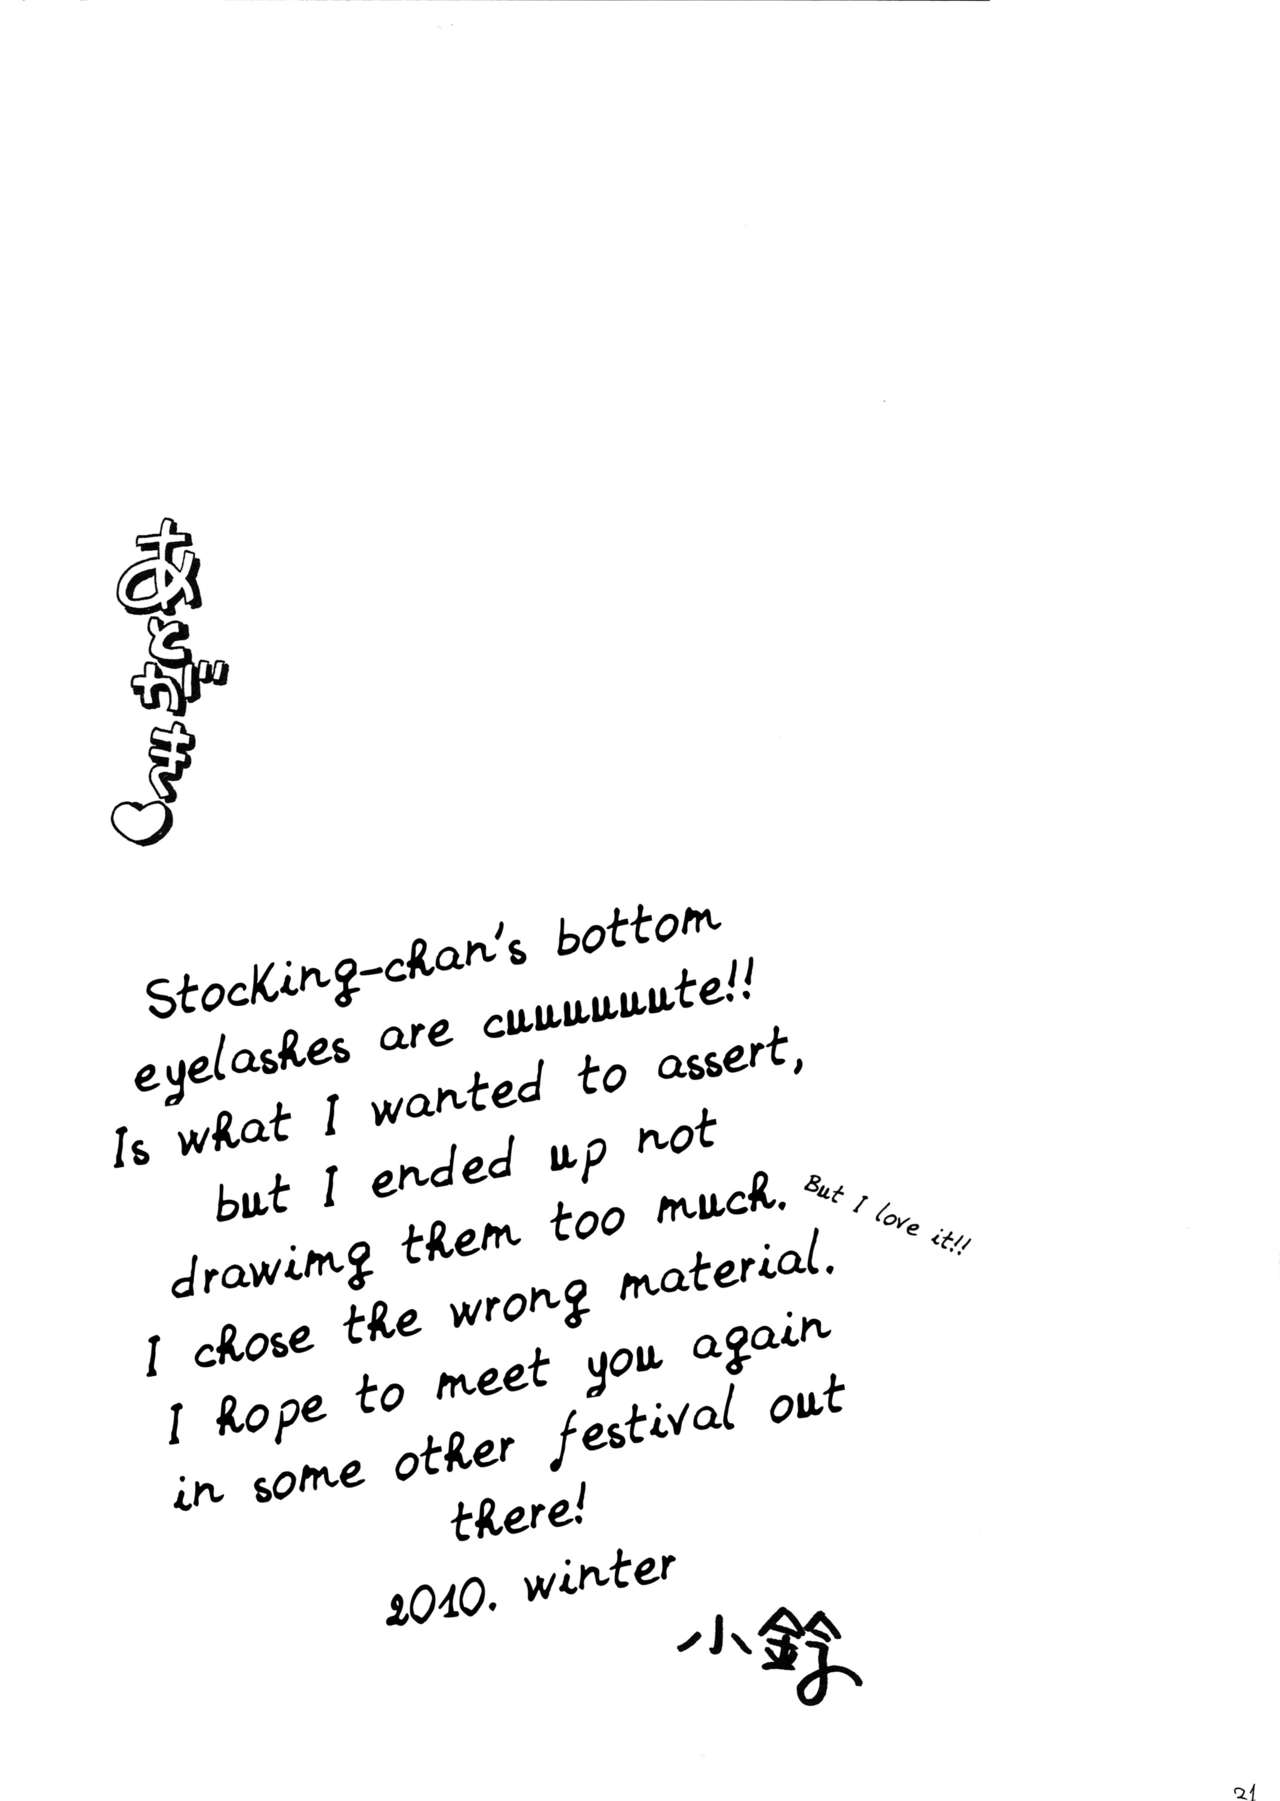 あとがき♡
Stocking-chan's bottom
eyelashes are cuuuuuuute!!
Is what I wanted to assert,
but I ended up not
drawimg them too much.
But I love it!!
I chose the wrong material.
I hope to meet you again
in some other festival out
there!
2010. winter
小鈴
21